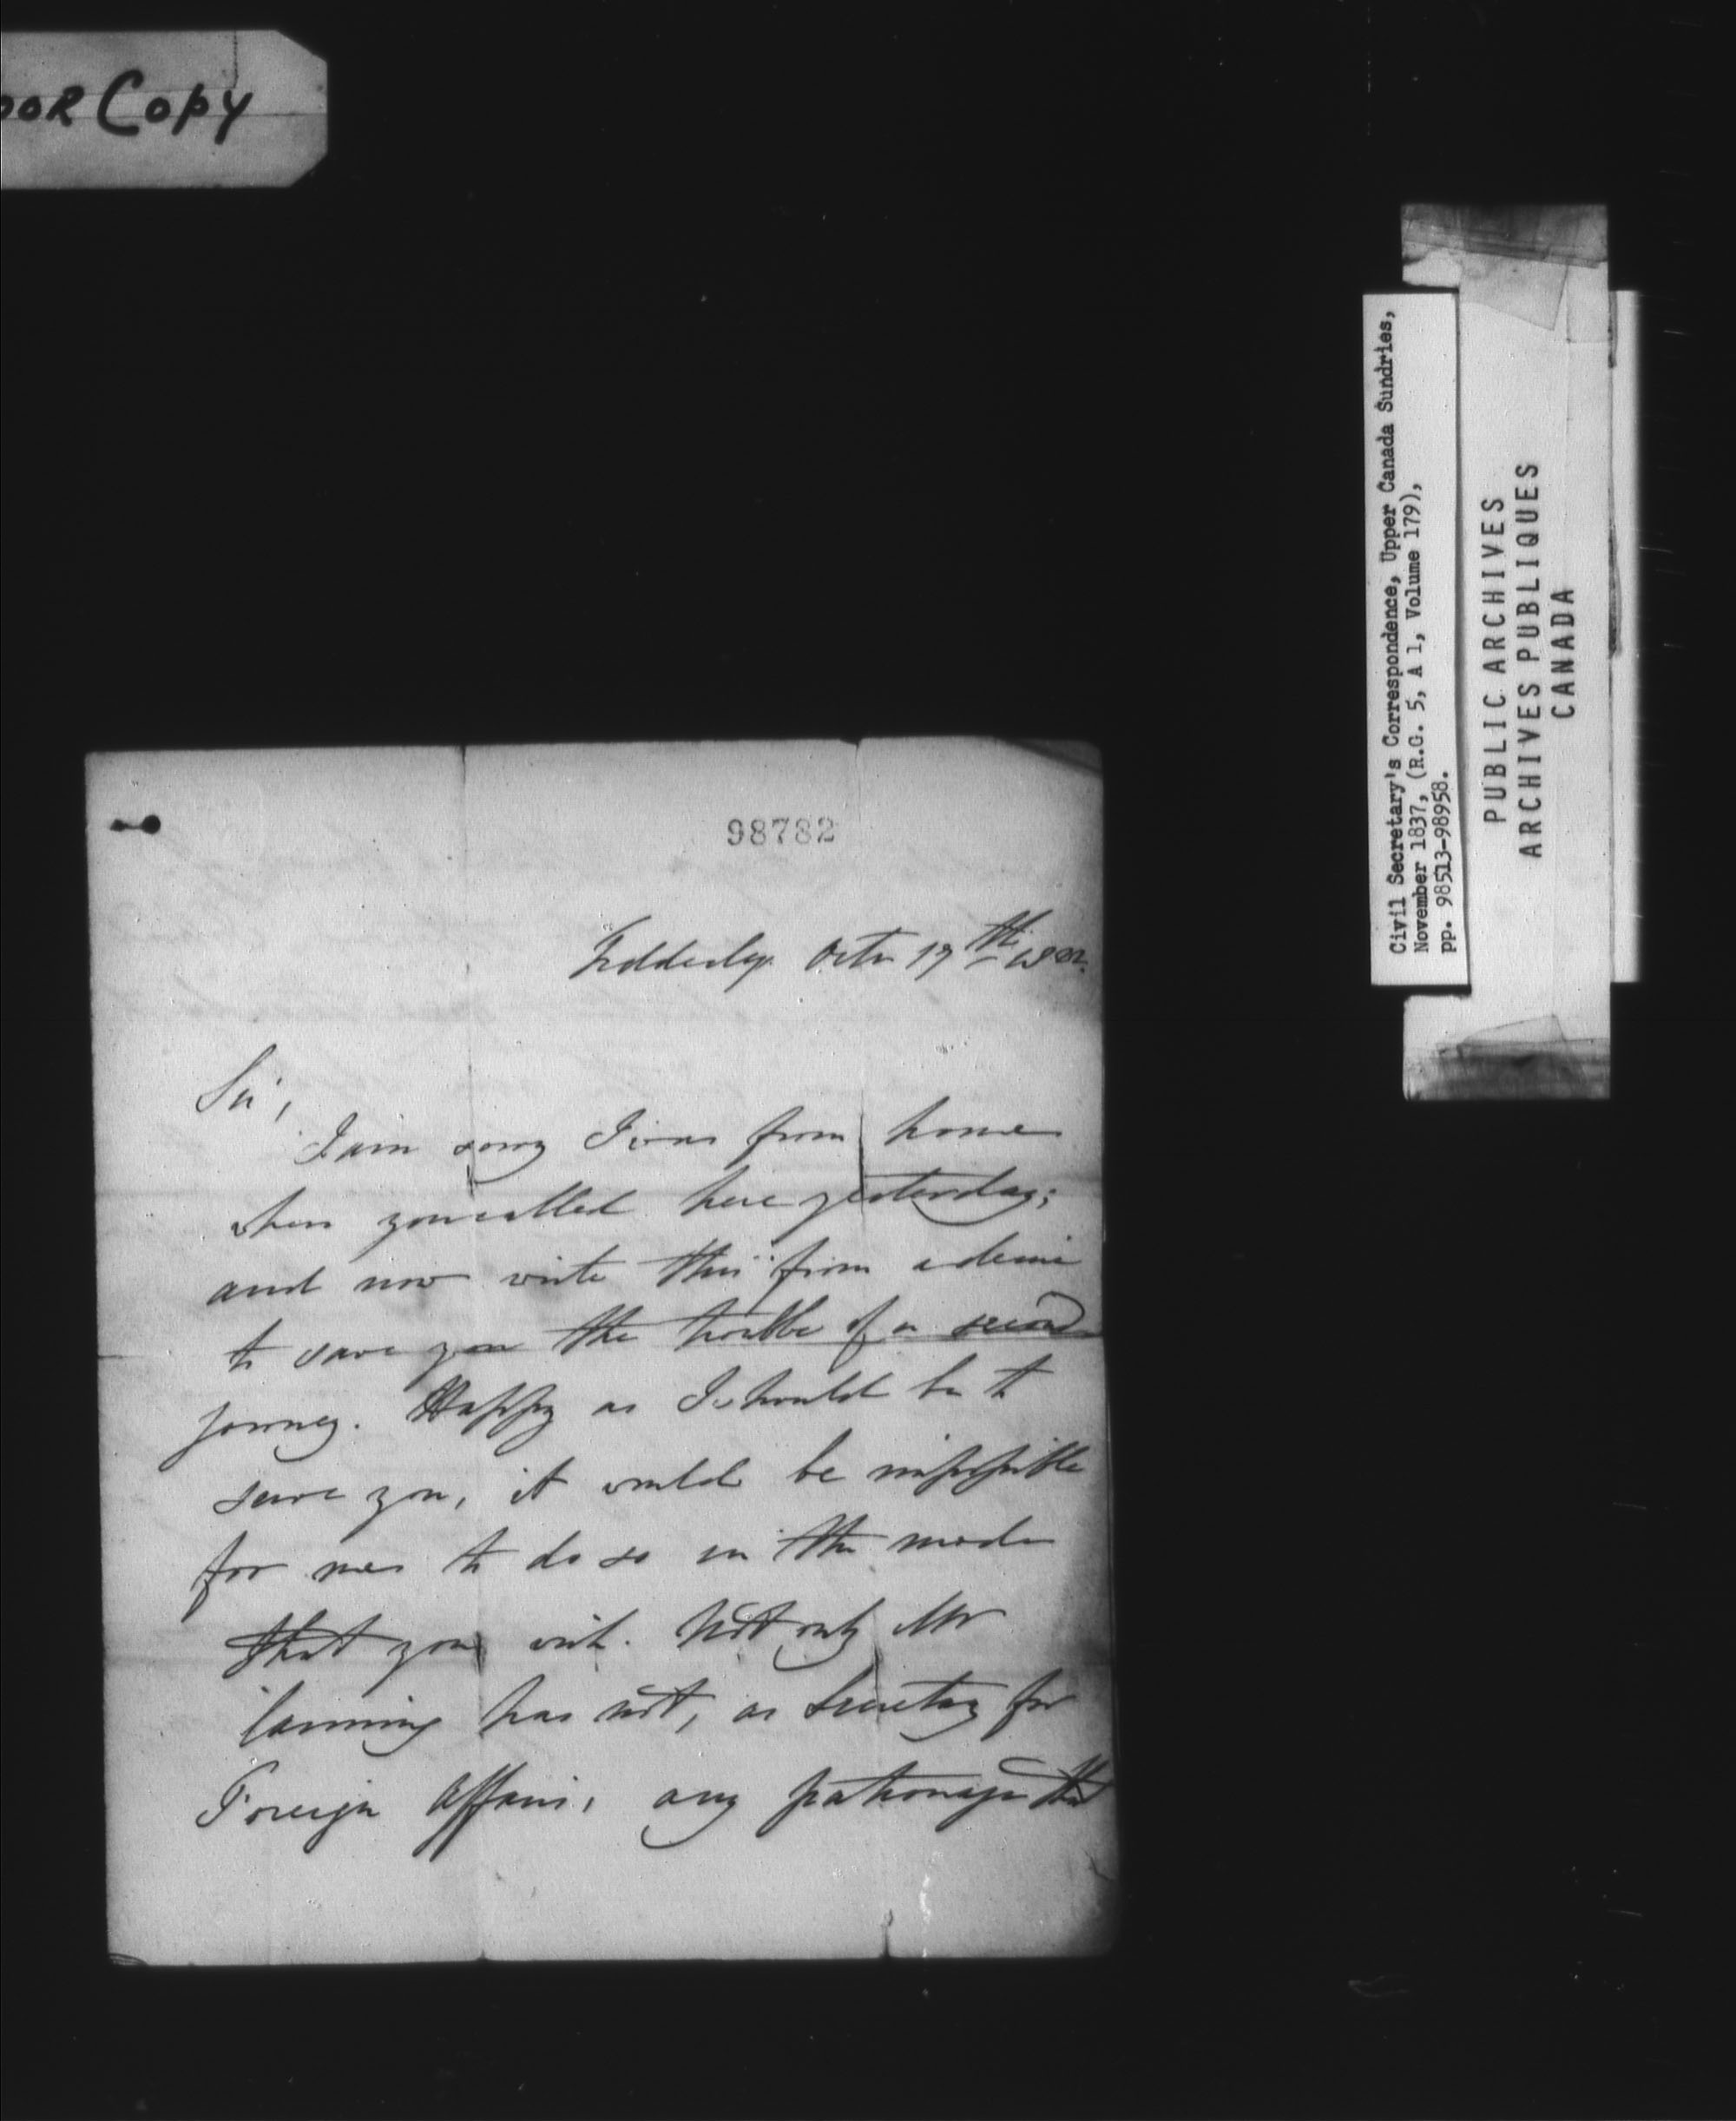 OOR COPY
98782
Octr 17th 1822.
Sir,
I am sorry I was from home
when you called here yesterday;
and now write this from a desire
to save you the trouble of a second
journey. Happy as I should be to
serve you, it would be impossible
for me to do so in the mode
that you wish. Not only Mr
Canning has not, as Secretary for
Foreign Affairs, any patronage that
Civil Secretary's Correspondence, Upper Canada Sundries,
November 1837, (R.G. 5, A 1, Volume 179),
pp. 98513-98958.
PUBLIC ARCHIVES
ARCHIVES PUBLIQUES
CANADA